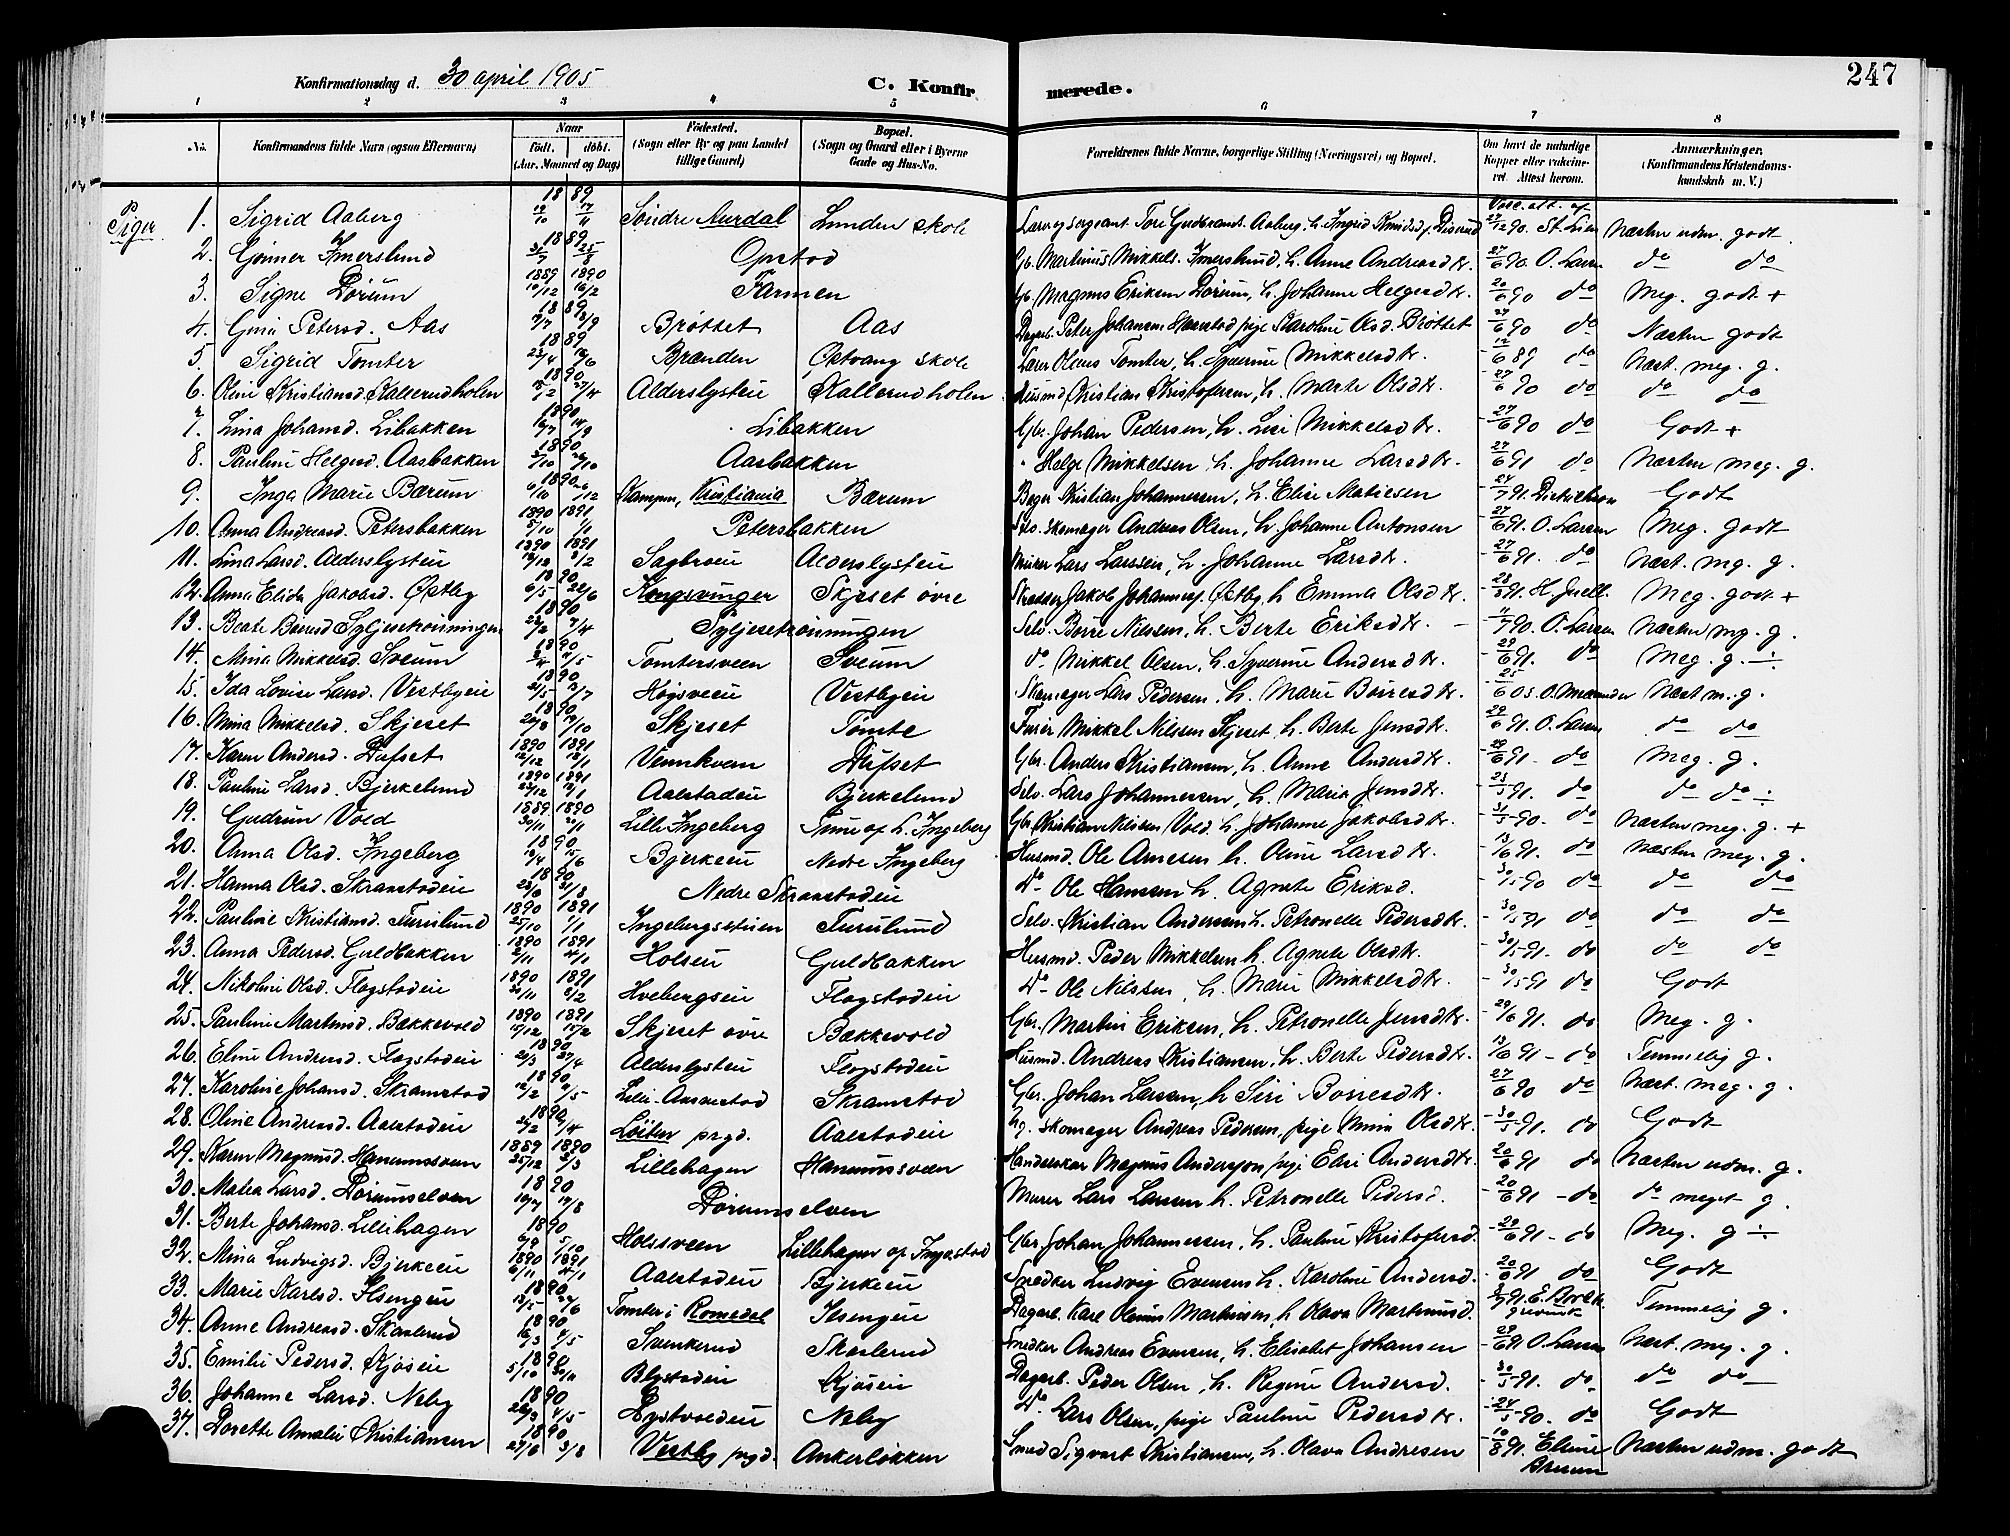 247
Konfirmationsdag d. 30 april 1905 C. Konfirmerede.
1 2 3 4 5 6 7 8
No. Konfirmandens fulde Navn (ogsaa Efternavn) Naar født. døbt. (Aar, Maaned og Dag) Fødested. (Sogn eller By og paa Landet tillige Gaard) Bopæl. (Sogn og Gaard eller i Byerne Gade og Hus-No. Forældrenes fulde Navne, borgerlige Stilling (Næringsvei) og Bopæl. Om havt de naturlige Kopper eller vaccineret. Attest herom. Anmærkninger. (Konfirmandens Kristendomskundskab m. V.)
Piger
1. Sigrid Aaberg 1889 Søndre Aurdal Lunden skole Tore Gudbrands. Aaberg, h. Ingrid 27/12 90. St. Lien Næsten udm. godt
2. Gunner Imerslund 1889 25/8 Opstad Gb. Martinius Mikkels. Imerslund, h. Anne Andreasdtr. 27/6 90. O. Larsen do do
3. Signe Dørum 1889 1890 10/12 16/2 Farmen Gb. Magnus Eriksen Dørum, h. Johanne Helgesdtr. 20/6 90 do Meg. godt +
4. Gina Petersd. Aas 1889 Brøttet Aas Dagarb. Peter Johansen pige Karoline Olsd. Brøttet 27/6 90 do Næsten godt
5. Sigrid Tomter 1889 23/4 16/6 Brænden Østvang skole Lærer Olaus Tomter, h. Syverine Mikkelsdtr. 12/6 89 do Næst. meg. g.
6. Oline Kristiansd. Kallerudholen 1890 27/4 Alderslysteie Kallerudholen Husmd Kristian Kristofersen, h. Marte Olsdtr. 27/6 90 do do do
7. Lina Johansd. Libakken 1890 Libakken Gbr. Johan Pedersen, h. Lisi Mikkelsdtr. 27/6 90 do Godt +
8. Pauline Helgesd. Aasbakken 1890 Aasbakken " Helge Mikkelsen h. Johanne Larsdtr. 27/6 91 do Næsten meg. g.
9. Inga Marie Bærum 1890 6/10 26/12 Kampen, Kristiania Bærum Bager Kristian Johannessen, h. Elise Matiesen 24/7 91. Godt
10. Anna Andreasd. Petersbakken 1890 1891 5/10 1/1 Petersbakken Selv. skomager Andreas Olsen, h. Johanne Antonsen 27/6 91. O. Larsen Meg. godt
11. Lina Larsd. Alderslysteie 1890 1891 Sagbroeie Alderslysteie Murer Lars Larssen, h. Johanne Larsdtr. 27/6 91. do Næst. mg. g.
12. Anna Elida Jakobsd. Østby 1890 6/5 22/6 Kongsvinger Skjeset øvre Skrædder Jakob Johannes. Østby, h Emma Olsdtr. H. Juell. Meg. godt +
13. Beate Børresd Syljesetrøisningen 1890 23/2 7/4 Syljesetrøisningen Selv. Børre Nilssen, h. Berte Eriksdtr. 7/90. O. Larsen Næsten mg. g.
14. Mina Mikkelsd. Sveum 1890 Tomtersveen Sveum do Mikkel Olsen, h. Syverine Andersdtr. 29/6 91. do Meg. g. ÷
15. Ida Lovise Larsd. Vestbyeie 1890 Høgsveeie Vestbyeie Skomager Lars Pedersen, h. Marie Børresdtr. 25/6 05. Næst m. g.
16. Mina Mikkelsd. Skjeset 1890 Skjeset Tomte Furer Mikkel Nilssen Skjeset h. Berte Jensdtr. 29/6 91. O. Larsen do do
17. Karen Andersd. Dufset 1890 1891 12/12 Vennkvern Dufset Gbr. Anders Kristiansen, h. Anne Andersdtr. 29/6 91. do Meg. g.
18. Pauline Larsd. Bjerkelund 1890 1891 Aalstadeie Bjerkelund Selv. Lars Johannessen, h. Maria Jensdtr. 91. do do do ÷
19. Gudrun Vold 1889 1890 30/11 Lille Ingeberg Tune af L. Ingeberg Gbr Kristian Nilssen Vold. h. Johanne Jakobsdtr. 31/5 90. do Næsten meg. g. +
20. Anna Olsd. Ingeberg 1890 15/6 Bjerkeeie Nedre Ingeberg Husmd. Ole Arnesen h. Oline Larsdtr. 13/6 91. do Næsten meg. g.
21. Hanna Olsd. Skramstadeie 1890 31/8 Nedre Skramstadeie do Ole Hanssen h. Agnete Eriksd. 30/5 90 do do do
22. Pauline Kristiansd. Furulund 1890 1891 25/10 1/1 Ingebergsstuen Furulund Selv. Kristian Anderssen h. Petronelle Pedersdtr. 30/5 91 do do do
23. Anna Pedersd. Guldbakken 1890 1891 Holseie Guldbakken Husmd. Peder Mikkelsen h. Agnete Olsdtr. 30/5 91. do do do
24. Nikoline Olsd. Flagstadeie 1890 1891 Hvebergseie Flagstadeie do Ole Nilssen, h. Marie Mikkelsdtr. 30/5 91 do Godt
25. Pauline Martinsd. Bækkevold 1890 1891 Skjeset øvre Bækkevold Gbr. Martin Eriksen, h. Petronelle Jensdtr. 29/6 91. do Meg. g.
26. Eline Andreasd. Flagstadeie 1890 27/4 Alderslysteie Flagstadeie Husmd. Andreas Kristiansen, h. Berte Pedersdtr. 13/6 91 do Temmelig g.
27. Karoline Johansd. Skramstad 1890 12/2 Lille Aanestad Skramstad Gbr. Johan Larssen, h Siri Børresdtr. 27/6 90 do Næst. meg. g.
28. Oline Andreasd. Aalstadeie 1890 Løiten prgd. Aalstadeie Skomager Andreas Pedersen, pige Mina Olsdtr. 30/5 91. do Godt
29. Karen Magnusd. Hanumsveen 1889 1890 25/12 2/3 Lillehagen Hanumsveen Handelskar Magnus Andersson pige Elsi Andersdtr. 20/6 91 do Næsten udm. g.
30. Matea Larsd. Dørumselven 1890 Dørumselven Murer Lars Larssen h. Petronelle Pedersd. 20/6 91 do do meget g.
31. Berte Johansd. Lillehagen 1890 5/10 Holssveen Lillehagen af Ingastad Gbr Johan Johannessen, h. Pauline Kristofersd. 20/6 91 do Meg. g ÷
32. Mina Ludvigsd. Bjerkeeie 1890 1891 6/11 Aalstadeie Bjerkeeie Snedker Ludvig Evensen h. Karoline Andersd. 20/6 91 do Godt
33. Marie Karlsd. Ilsengeie 1890 Tomter i Romedal Ilsengeie Dagarb. Karl Olinus Martinsen, h Olava Martinusd. Temmelig g.
34. Anne Andreasd. Skaslerud 1890 Svenkerud Skaslerud Snedker Andreas Evensen, h. Elisabet Johansen 29/6 91 O. Larsen Næst. mg. g.
35. Emilie Pedersd. Kjøseie 1890 5/10 Blystadeie Kjøseie Dagarb. Peder Olsen, h. Regine Andersd. 30/5 91. do do do
36. Johanne Larsd. Neby 1890 4/5 Hystvoldeie Neby do Lars Olsen, pige Pauline Pedersdtr. 24/5 90. do Godt
37. Dorette Amalie Kristiansen 1890 27/6 3/8 Vestby prgd. Ankerløkken Smed Sigvart Kristiansen, h. Olava Andresen 10/8 91. Eline Næsten udm. godt